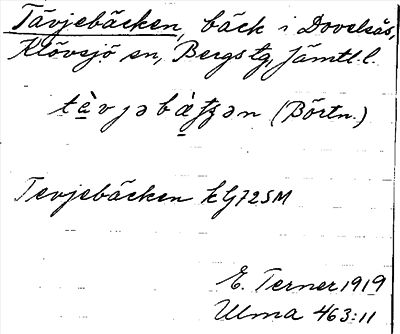 Tävjebäcken, bäck i Dovelsås,
Klövsjö sn, Bergs tg, Jämtl. l.
tæ̀vjəbæ̀ţʂən (Börtn.)
Tevjebäcken kG72SM
E. Terner 1919
Ulma 463:11